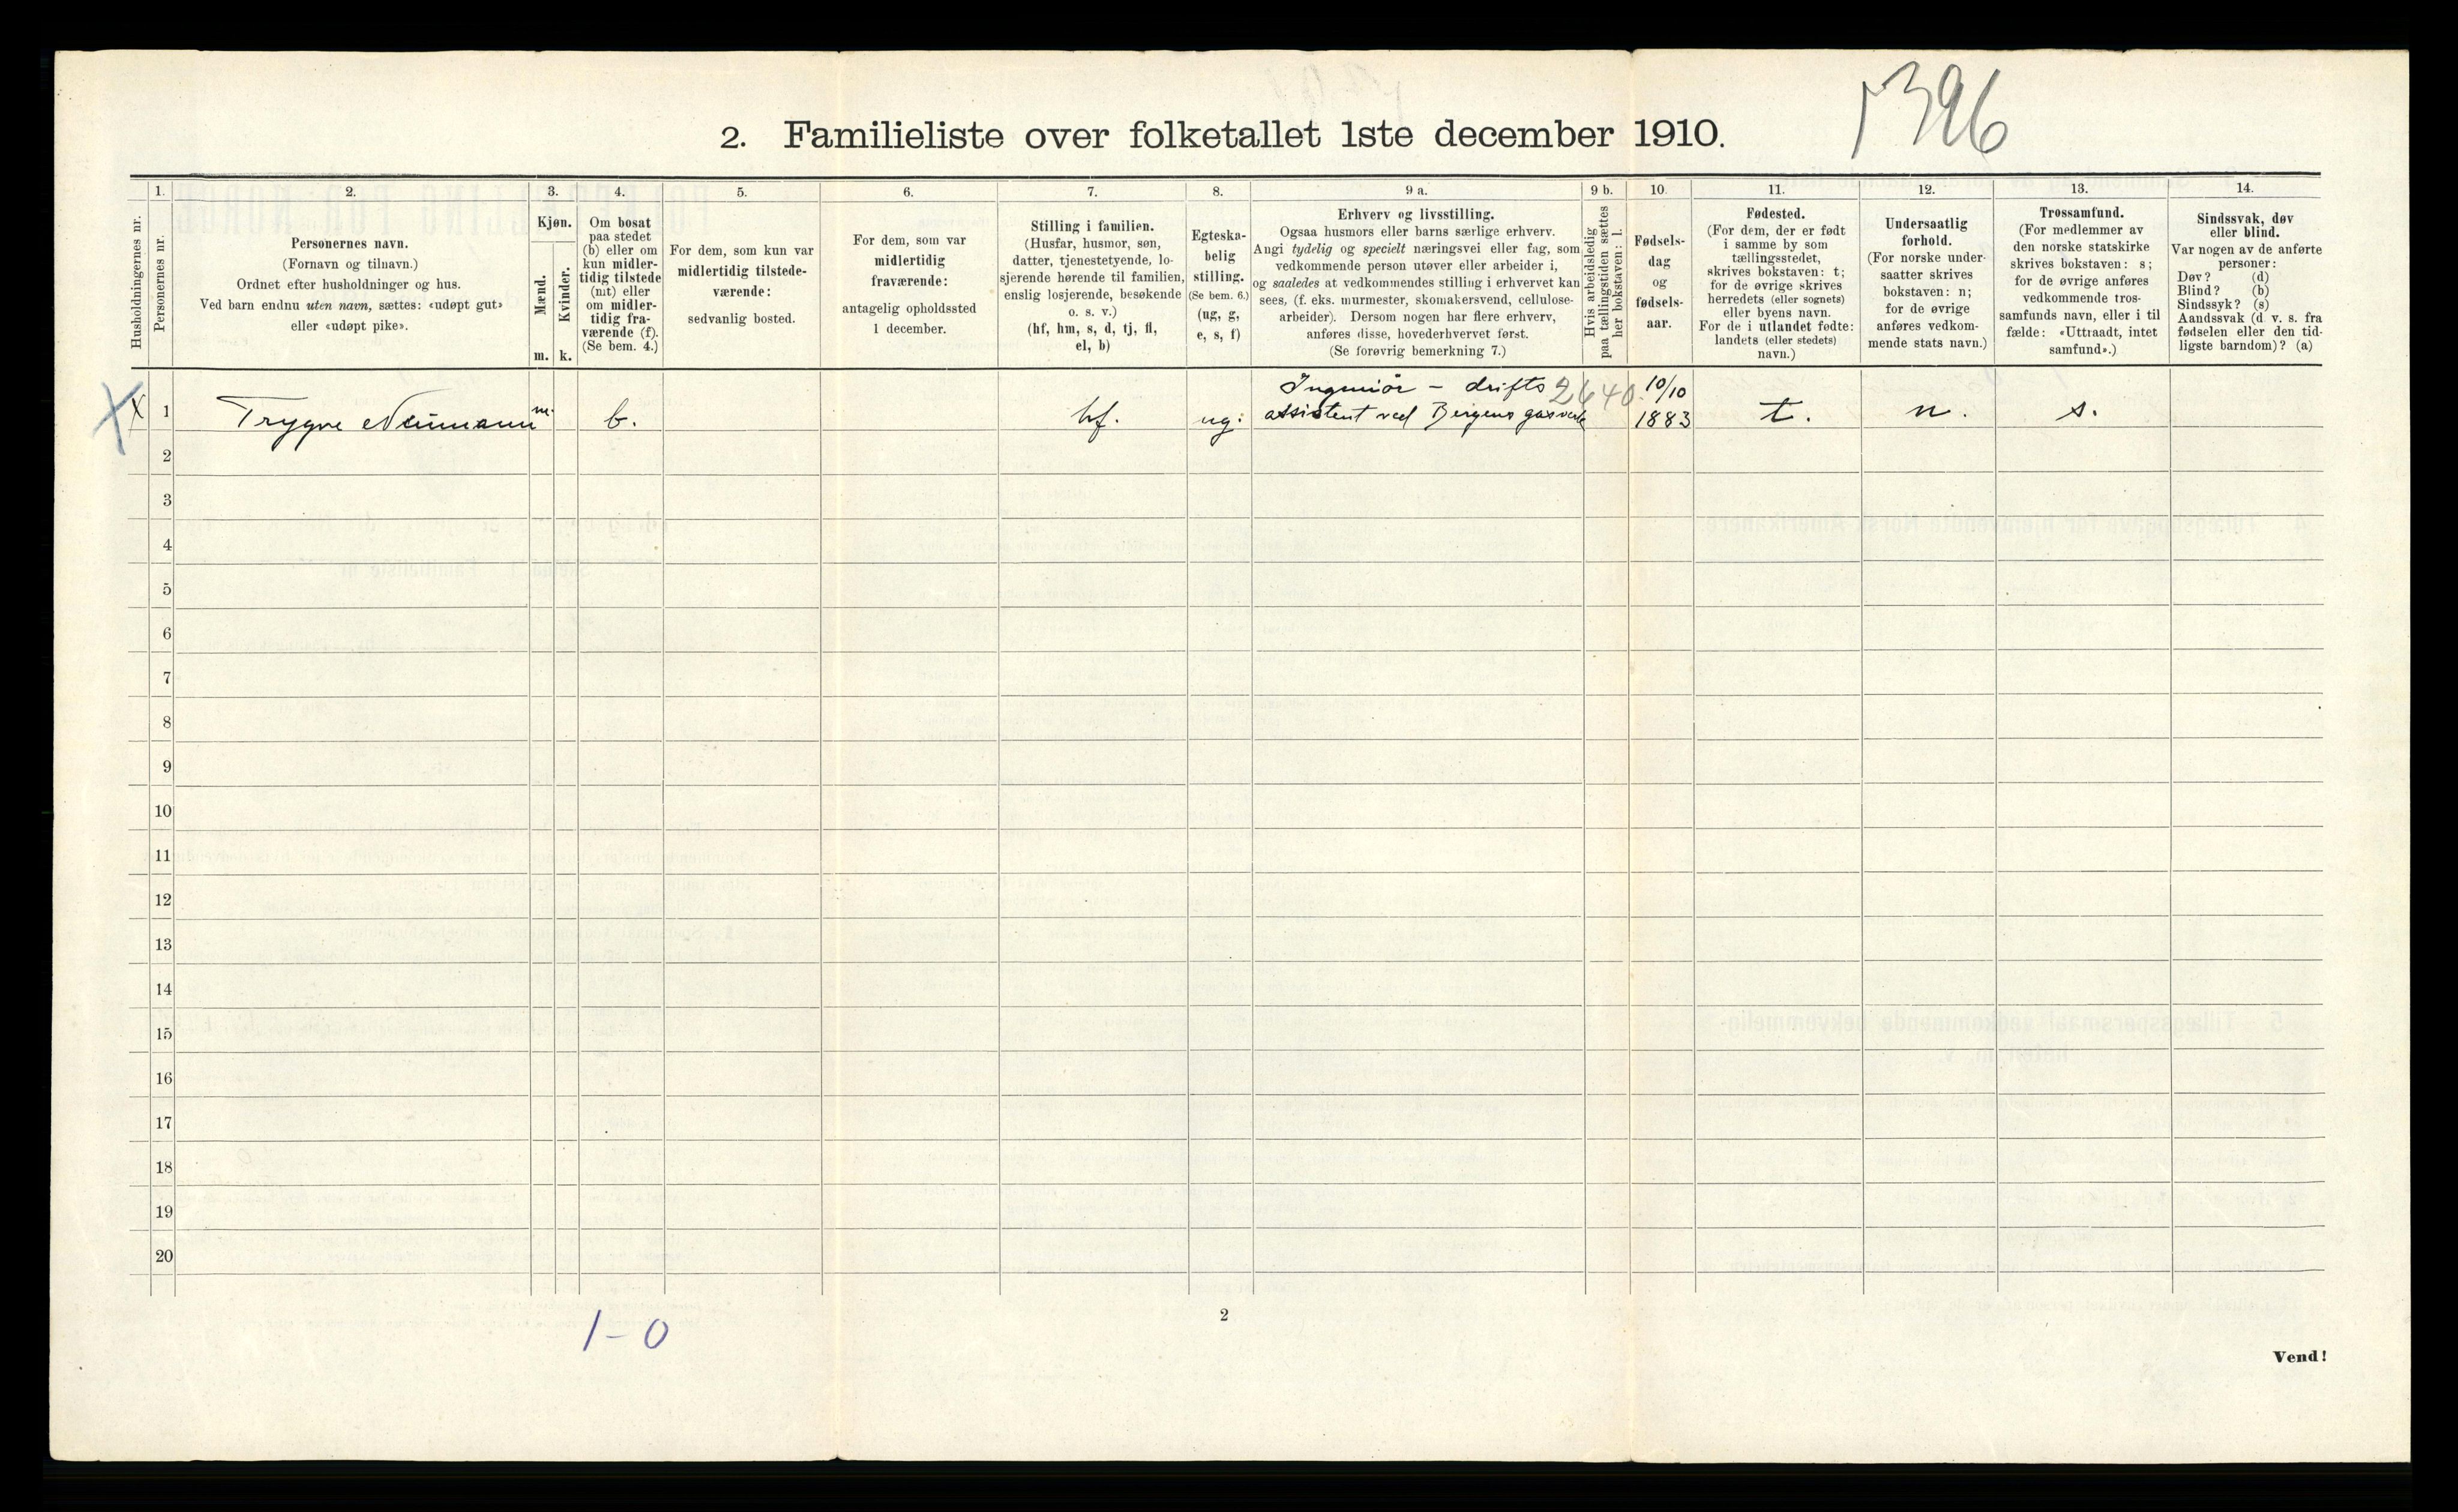 1396
2. Familieliste over folketallet 1ste december 1910.
1.
2.
3.
4.
5.
6.
7.
8.
9 a.
9 b.
10.
11.
12.
13.
14.
Husholdningernes nr.
Personernes nr.
Personernes navn.
(Fornavn og tilnavn.)
Ordnet efter husholdninger og hus.
Ved barn endnu uten navn, sættes: «udøpt gut»
eller «udøpt pike».
Kjøn.
Mænd.
Kvinder.
m.
k.
Om bosat
paa stedet
(b) eller om
kun midler-
tidig tilstede
(mt) eller
om midler-
tidig fra-
værende (f).
(Se bem. 4.)
For dem, som kun var
midlertidig tilstede-
værende:
sedvanlig bosted.
For dem, som var
midlertidig
fraværende:
antagelig opholdssted
1 december.
Stilling i familien.
(Husfar, husmor, søn,
datter, tjenestetyende, lo-
sjerende hørende til familien,
enslig losjerende, besøkende
o. s. v.)
(hf, hm, s, d, tj, fl,
el, b)
Egteska-
belig
stilling.
(Se bem. 6.)
(ug, g,
e, s, f)
Erhverv og livsstilling.
Ogsaa husmors eller barns særlige erhverv.
Angi tydelig og specielt næringsvei eller fag, som
vedkommende person utøver eller arbeider i,
og saaledes at vedkommendes stilling i erhvervet kan
sees, (f. eks. murmester, skomakersvend, cellulose-
arbeider). Dersom nogen har flere erhverv,
anføres disse, hovederhvervet først.
(Se forøvrig bemerkning 7.)
Hvis arbeidsledig
paa tællingstiden sættes
her bokstaven: l.
Fødsels-
dag
og
fødsels-
aar.
Fødested.
(For dem, der er født
i samme by som
tællingsstedet,
skrives bokstaven: t;
for de øvrige skrives
herredets (eller sognets)
eller byens navn.
For de i utlandet fødte:
landets (eller stedets)
navn.)
Undersaatlig
forhold.
(For norske under-
saatter skrives
bokstaven: n;
for de øvrige
anføres vedkom-
mende stats navn.)
Trossamfund.
(For medlemmer av
den norske statskirke
skrives bokstaven: s;
for de øvrige anføres
vedkommende tros-
samfunds navn, eller i til
fælde: «Uttraadt, intet
samfund».)
Sindssvak, døv
eller blind.
Var nogen av de anførte
personer:
Døv? (d)
Blind? (b)
Sindssyk? (s)
Aandssvak (d. v. s. fra
fødselen eller den tid-
ligste barndom)? (a)
Ingeniör - drifts 2640 10/10
X X 1 Trygve Neumann m. b. hf. ug: assistent ved Bergens gasverk 1883 t. n. s.
2
3
4
5
6
7
8
9
10
11
12
13
14
15
16
17
18
19
20
1-0
2
Vend!